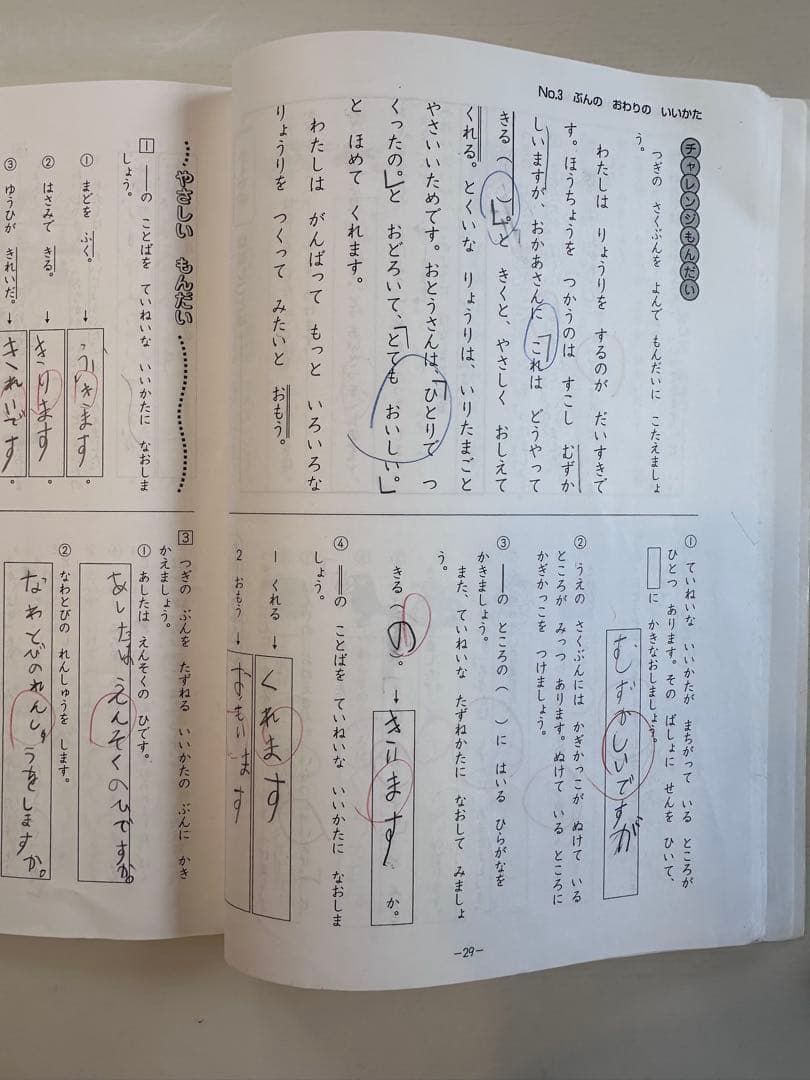 No.3 ぶんの おわりの いいかた
チャレンジもんだい
つぎの さくぶんを よんで もんだいに こたえましょ
う。
わたしは りょうりを するのが だいすきで
す。ほうちょうを つかうのは すこし むずか
しいますが、おかあさんに「これは どうやって
きる( )。」と きくと、やさしく おしえて
くれる。とくいな りょうりは、いりたまごと
やさいいためです。おとうさんは、「ひとりで つ
くったの。」と おどろいて、「とても おいしい。」
と ほめて くれます。
わたしは がんばって もっと いろいろな
りょうりを つくって みたいと おもう。
① ていねいな いいかたが まちがって いる ところが
ひとつ あります。その ばしょに せんを ひいて、
に かきなおしましょう。
むずかしいですが
② うえの さくぶんには かぎかっこが ぬけて いる
ところが みっつ あります。ぬけて いる ところに
かぎかっこを つけましょう。
③ ―の ところの( )に はいる ひらがなを
かきましょう。
また、ていねいな たずねかたに なおして みましょ
う。
きる(の)。→きります か。
④ ＝の ことばを ていねいな いいかたに なおしま
しょう。
1 くれる→くれます
2 おもう→おもいます
-29-
やさしい もんだい
1 ―の ことばを ていねいな いいかたに なおしま
しょう。
① まどを ふく。→ふきます。
② はさみで きる。→きります。
③ ゆうひが きれいだ。→きれいです。
3 つぎの ぶんを たずねる いいかたの ぶんに かき
かえましょう。
① あしたは えんそくの ひです。
あしたは えんそくのひですか。
② なわとびの れんしゅうを します。
なわとびのれんしゅうをしますか。